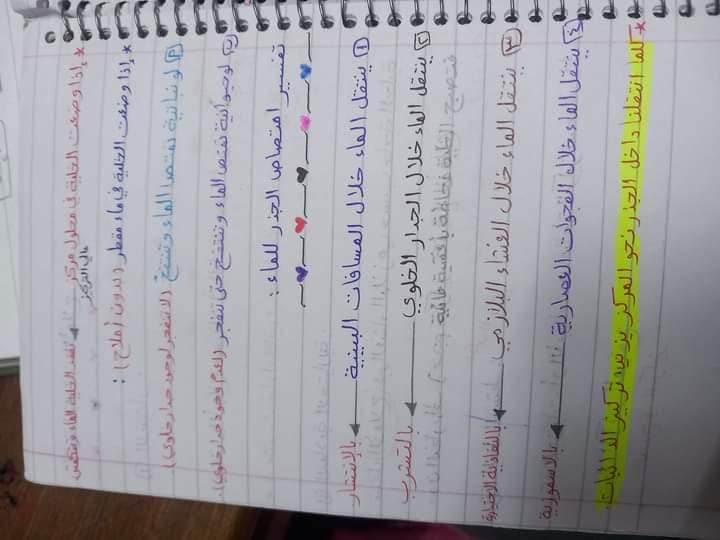 * إذا وضعت الخلية في محلول مركز ← تفقد الخلية الماء وتنكمش
عالي التركيز
* إذا وضعت الخلية في ماء مقطر (بدون أملاح) :
لو نباتية تمتص الماء وتنتفخ (لا تنفجر لوجود جدار خلوي)
لو حيوانية تمتص الماء وتنتفخ حتى تنفجر (لعدم وجود جدار خلوي)
تفسير امتصاص الجذر للماء :
١ ينتقل الماء خلال المسافات البينية ← بالانتشار
٢ ينتقل الماء خلال الجدار الخلوي ← بالتشرب
٣ ينتقل الماء خلال الغشاء البلازمي ← بالنفاذية الاختيارية
٤ ينتقل الماء خلال الفجوات العصارية ← بالاسموزية
* كلما انتقلنا داخل الجذر نحو المركز يزيد تركيز الذائبات